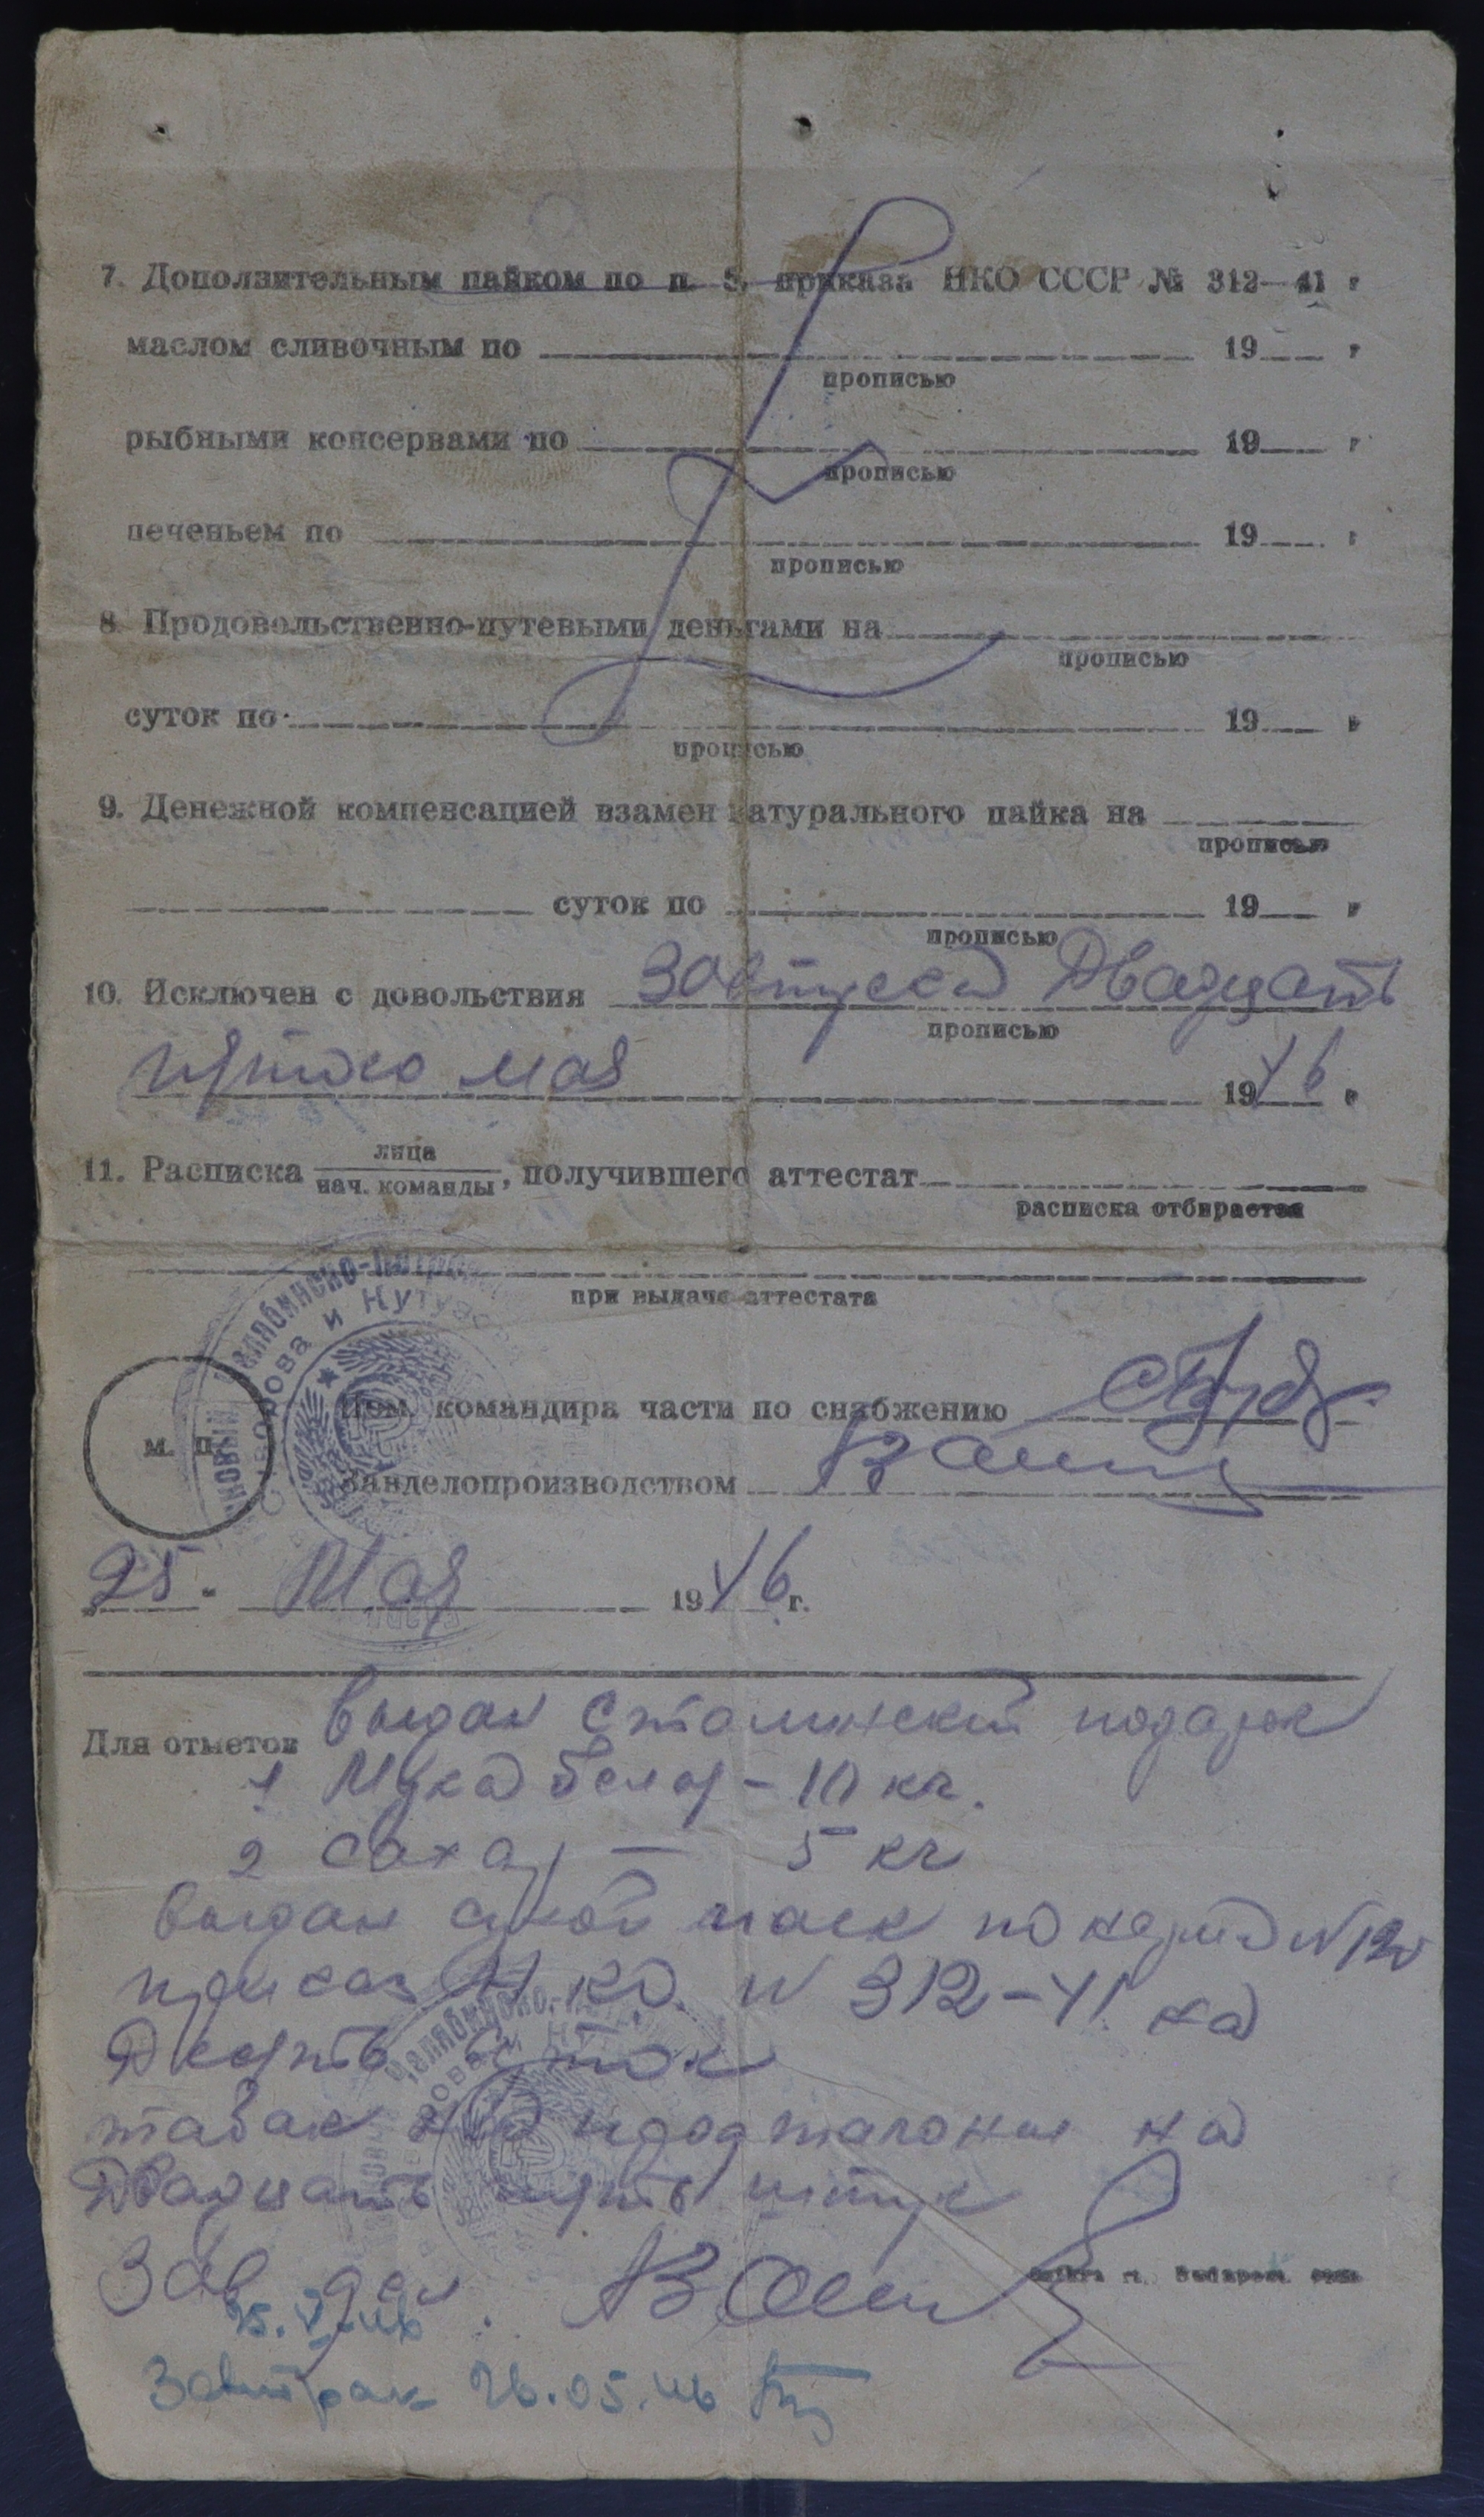 7. Дополнительным пайком по п. 3, приказа НКО СССР № 312—41 г
маслом сливочным по 19 г
прописью
рыбными консервами по 19 г
прописью
печеньем по 19 г
прописью
8. Продовольственно-путевыми деньгами на
прописью
суток по 19 г
прописью
9. Денежной компенсацией взамен натурального пайка на
прописью
суток по 19 г
прописью
10. Исключен с довольствия Завтрака Двадцать
прописью
пятого мая 1946 г
11. Расписка лица
нач. команды, получившего аттестат
расписка отбирается
при выдаче аттестата
Челябинско-
Суворова и Кутузова
м. п.
Пом. командира части по снабжению
Завделопроизводством
25. Мая 1946 г.
Для отметок выдан Сталинский подарок
1 Мука белая - 10 кг.
2 Сахар — 5 кг
выдан сухой паек по норме №
приказ НКО. № 312-41 на
Десять суток
табак на
Двадцать пять штук
Зав. дел.
25.V.46
Завтрак 26.05.46